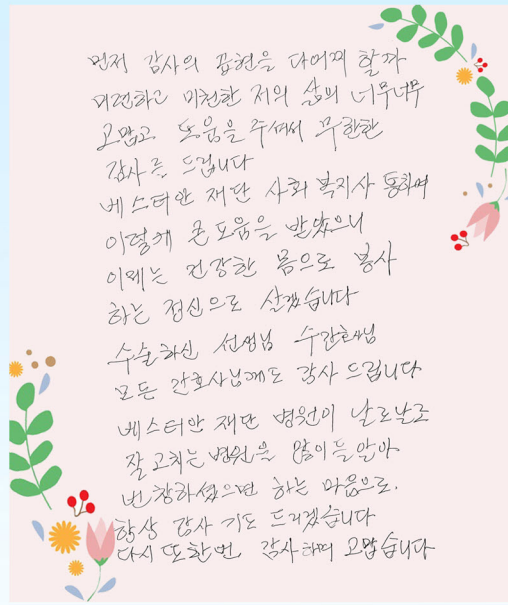 먼저 감사의 표현을 다어찌 할까
미련하고 미천한 저의 삶의 너무너무
고맙고 도움을 주셔서 무한한
감사를 드립니다
베스티안 재단 사회 복지사 통하여
이렇게 큰 도움을 받았으니
이제는 건강한 몸으로 봉사
하는 정신으로 살겠습니다
수술하신 선생님 수간호사님
모든 간호사님께도 감사 드립니다
베스티안 재단 병원이 날로날로
잘 고치는 병원을 많이들 알아
번창하셨으면 하는 마음으로.
항상 감사 기도 드리겠습니다
다시 또한번 감사하며 고맙습니다